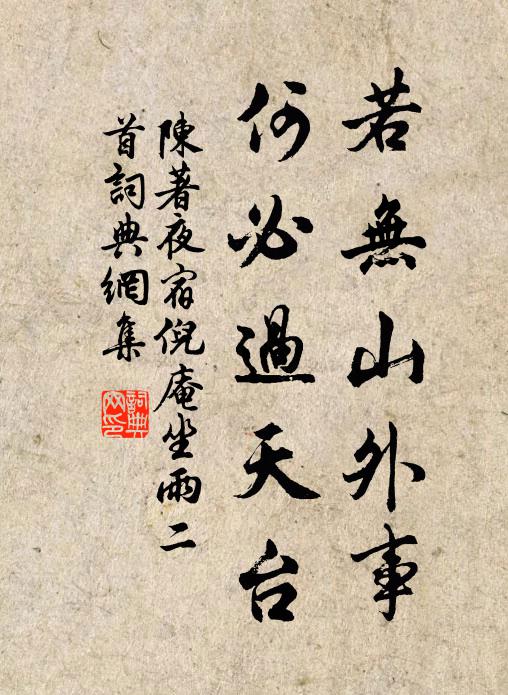 若無山外事
何必過天台
陳著夜宿倪庵坐雨二
首詞典網集
詞典網印